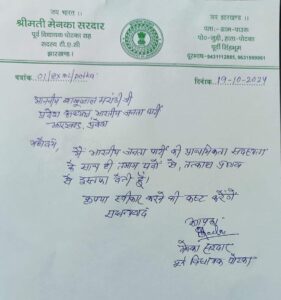 जय भारत।
जय झारखण्ड।
श्रीमती मेनका सरदार
पूर्व विधायक पोटका सह
सदस्य टी.ए.सी
झारखण्ड।
पो०-जुड़ी, हाता-पोटका
पूर्वी सिंहभूम
पत्रांक 01/ex mla/potka
दिनांक 19-10-2024
माननीय बाबूलाल मरांडी जी
प्रदेश अध्यक्ष भारतीय जनता पार्टी
झारखंड, प्रदेश
महोदय,
मैं भारतीय जनता पार्टी की प्राथमिकता सदस्यता
के साथ ही तमाम पदों से, तत्काल प्रभाव
से इस्तफा देती हूँ।
कृपया स्वीकार करने की कष्ट करेंगे
धन्यवाद
मेनका सरदार
पूर्व विधायक पोटका